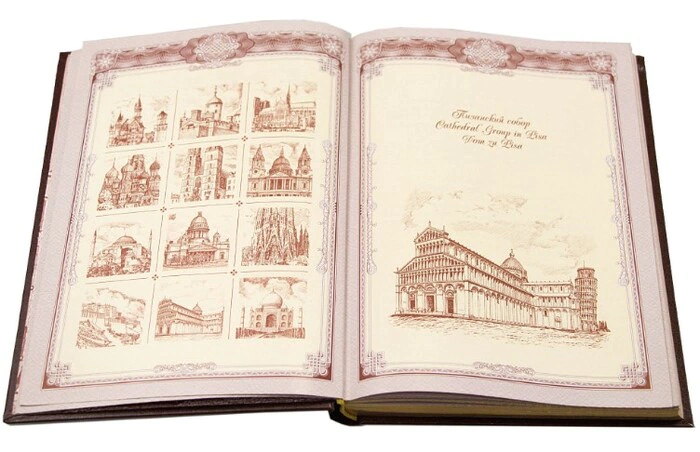 Пизанский собор
Cathedral Group in Pisa
Dom zu Pisa